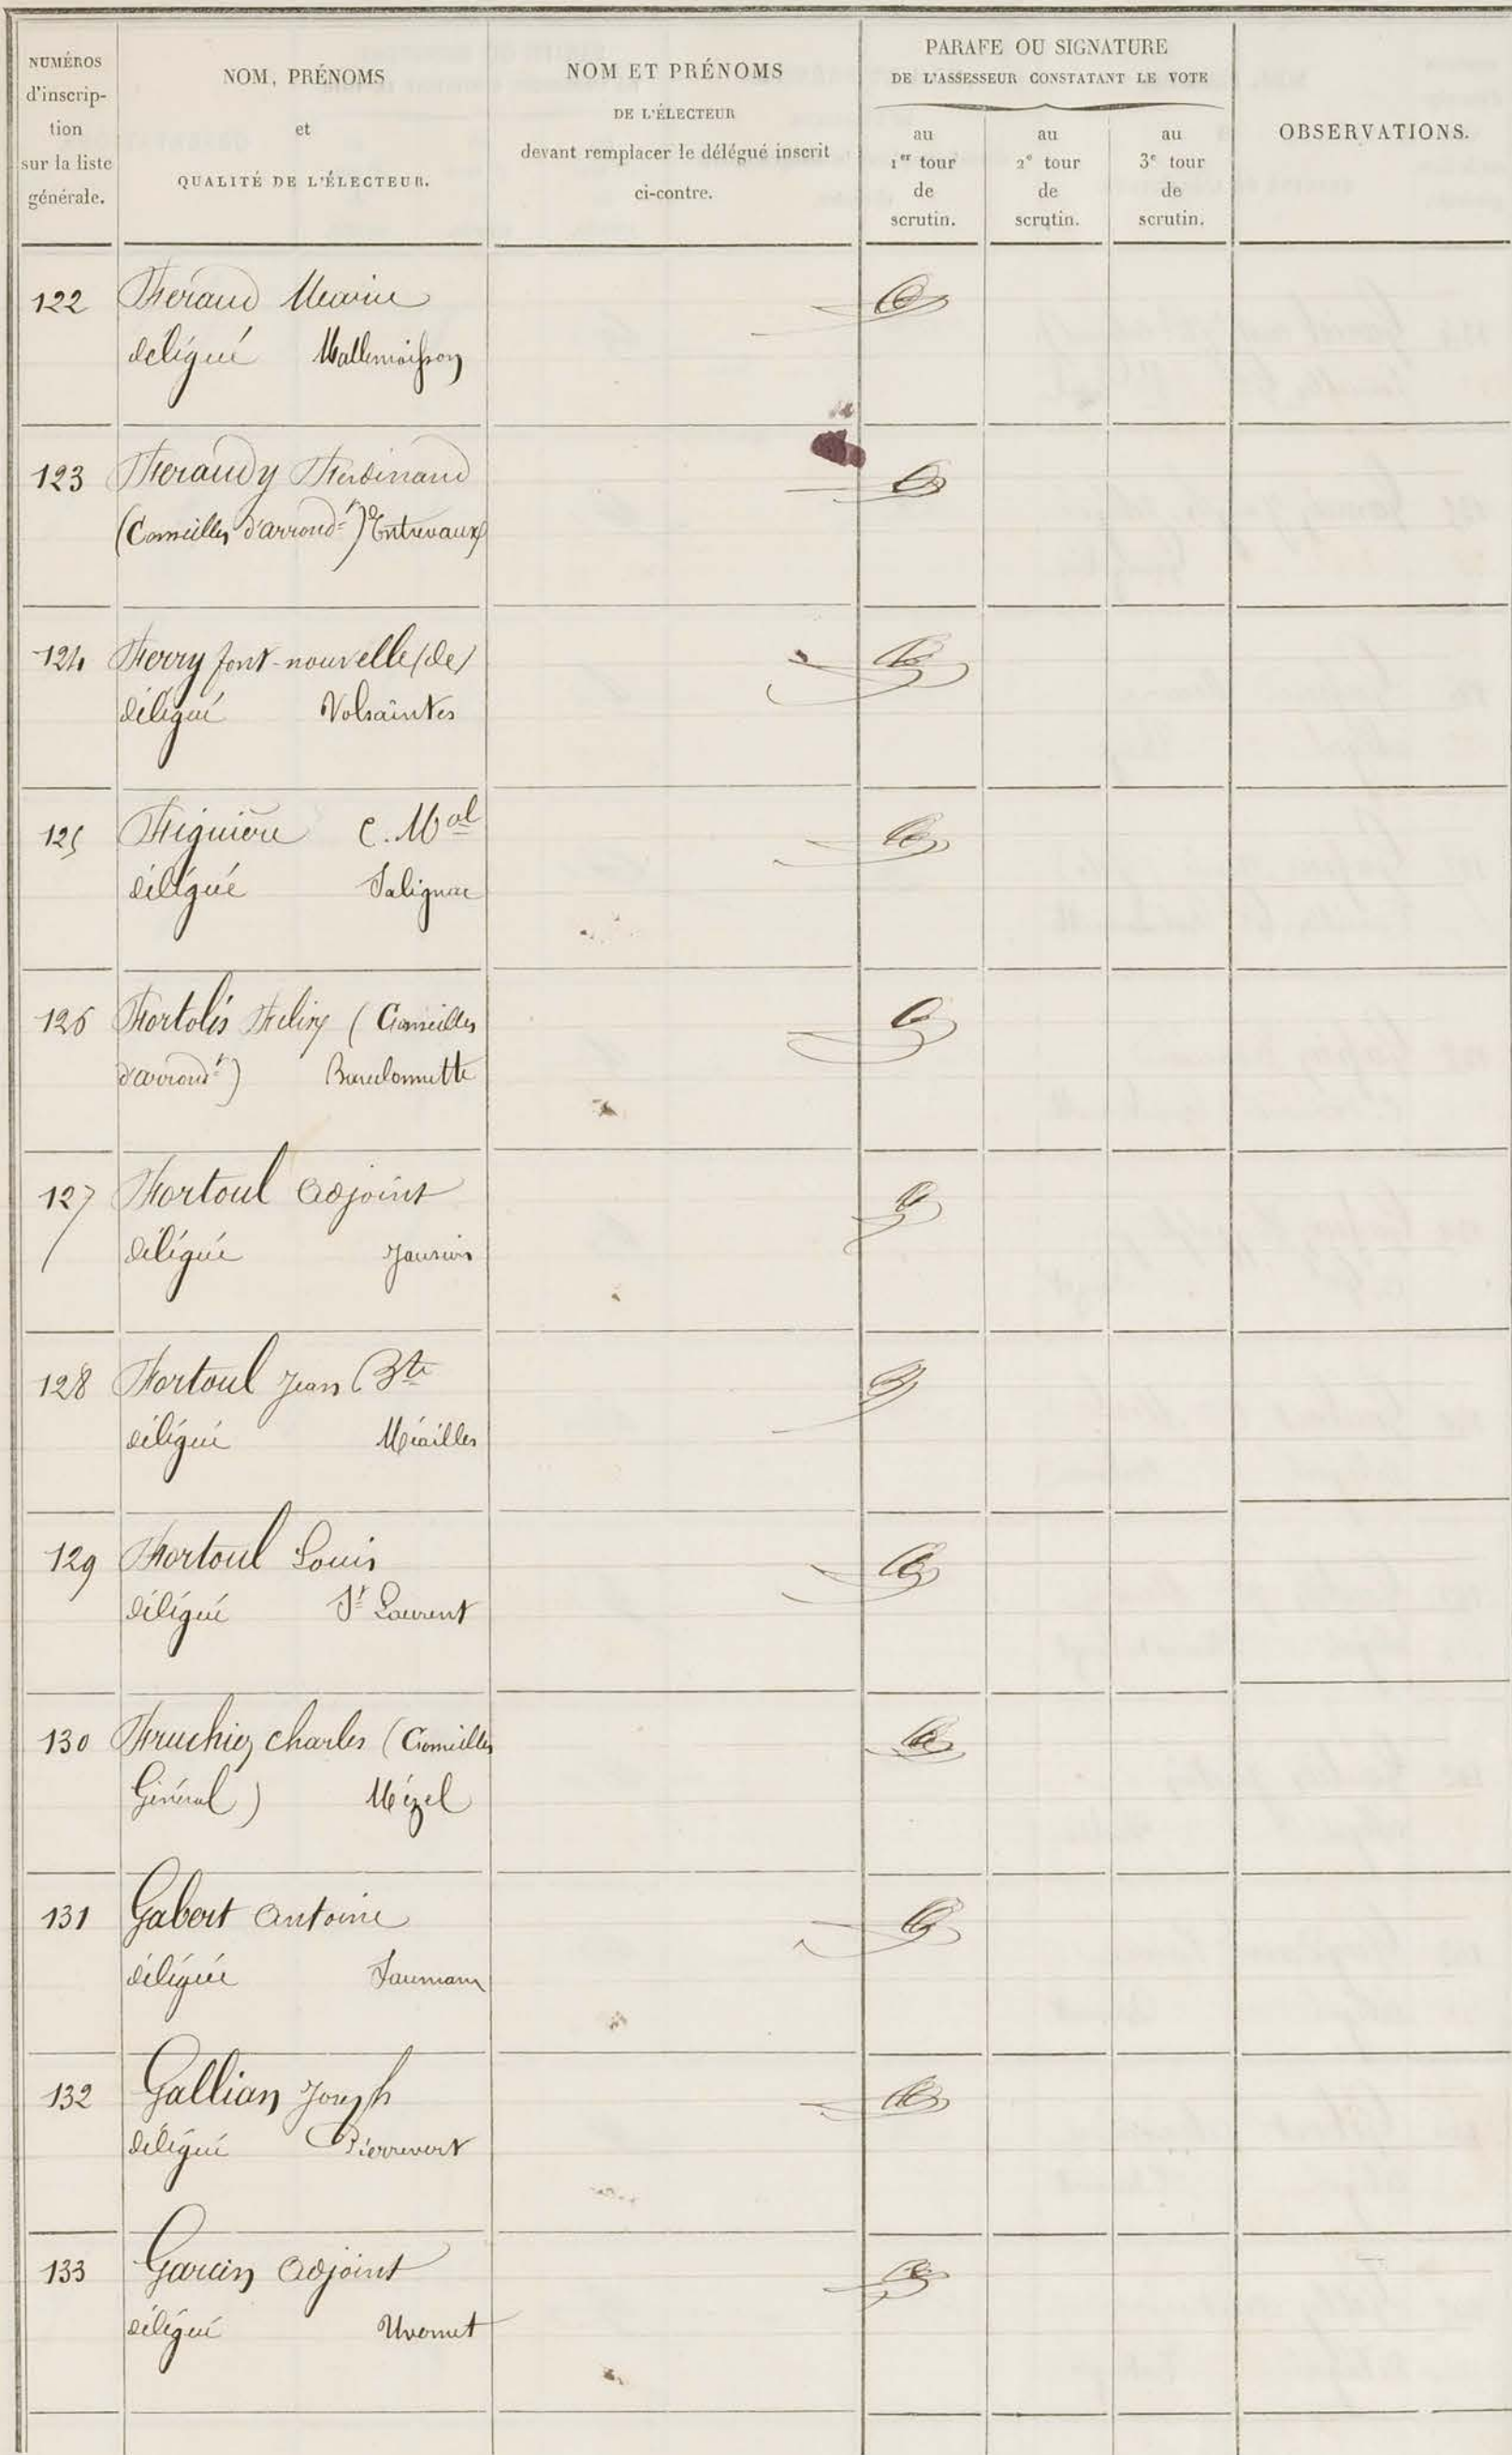 NUMÉROS
d'inscrip-
tion
sur la liste
générale.
NOM, PRÉNOMS
et
QUALITÉ DE L'ÉLECTEUR.
NOM ET PRÉNOMS
DE L'ÉLECTEUR
devant remplacer le délégué inscrit
ci-contre.
PARAFE OU SIGNATURE
DE L'ASSESSEUR CONSTATANT LE VOTE
au
1er tour
de
scrutin.
au
2e tour
de
scrutin.
au
3e tour
de
scrutin.
OBSERVATIONS.
122 Feraud Maire
délégué Mallemoisson
123 Feraudy Ferdinand
(Conseiller d'arrondt) Entrevaux
124 Ferry font-nouvelle (de)
délégué Volsaintes
125 Figuière C. Mal
délégué Salignac
126 Fortolis Felix (Conseiller
d'arrondt) Barcelonnette
127 Fortoul adjoint
délégué Jausiers
128 Fortoul Jean Bte
délégué Méailles
129 Fortoul Louis
délégué St Laurent
130 Fruchier Charles (Conseiller
Général) Mézel
131 Gabert Antoine
délégué Saumane
132 Gallian Joseph
délégué Pierrevert
133 Garcin adjoint
délégué Uvernet